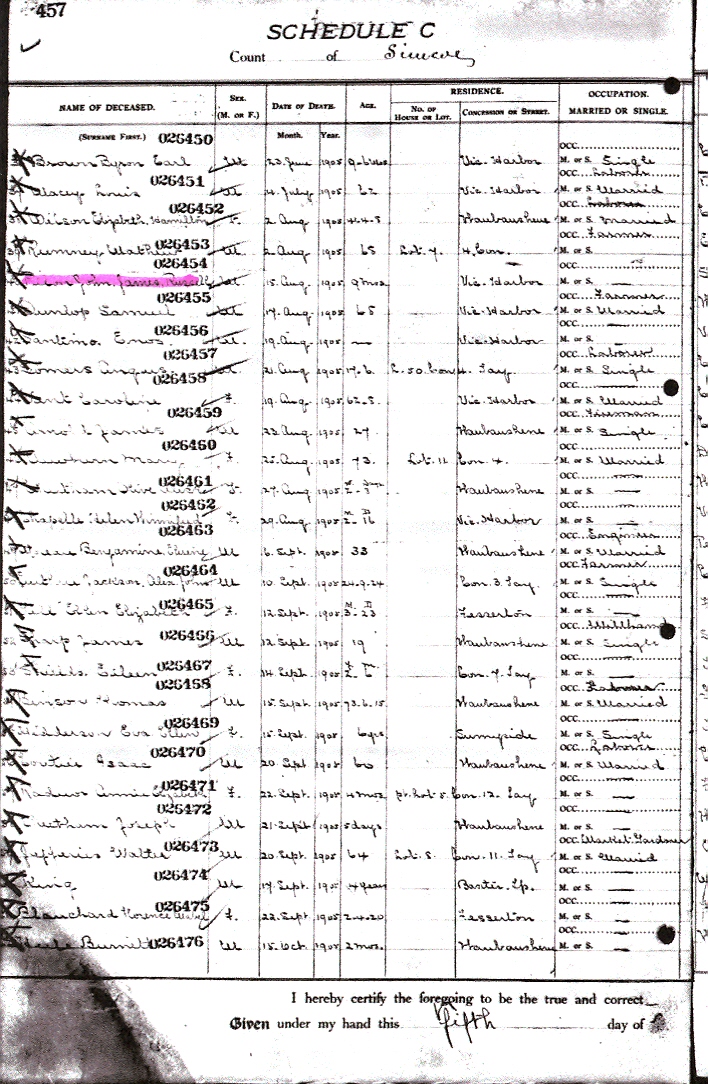 457
SCHEDULE C
Count of Simcoe
NAME OF DECEASED. SEX. DATE OF DEATH. AGE. RESIDENCE. OCCUPATION.
(M. OR F.) NO. OF HOUSE OR LOT. CONCESSION OR STREET. MARRIED OR SINGLE.
(SURNAME FIRST.) 026450 Month. Year. OCC.
Brown Byron Earl M 23 June 1905 Vic. Harbor M. or S. Single
026451 OCC. Laborer
Louis M 24 July 1905 62 Vic. Harbor M. or S. Married
026452 OCC. Laborer
Wilson Elizabeth Hamilton F. 2 Aug 1905 44.4.5 Waubaushene M. or S. Married
026453 OCC. Farmer
Rumney Mathew M. 2 Aug 1905 65 Lot 7 4 Con. M. or S.
026454 OCC.
John James Russell M. 15 Aug 1905 9 mos Vic. Harbor M. or S. —
026455 OCC. Farmer
Dunlop Samuel M 17 Aug 1905 65 Vic. Harbor M. or S. Married
026456 OCC. —
Enos. M. 19 Aug 1905 — Vic. Harbor M. or S. —
026457 OCC. Laborer
Somers Angus M. 21 Aug 1905 17.6 L. 50 Con 4. Tay M. or S. Single
026458 OCC. —
Caroline F. 19 Aug 1905 62.8 Vic. Harbor M. or S. Married
026459 OCC. Fireman
James M 23 Aug 1905 27 Waubaushene M. or S. Single
026460 OCC.
Mary F. 25 Aug 1905 73. Lot 11 Con 4. M. or S. Married
026461 OCC. —
F. 27 Aug 1905 Waubaushene M. or S. —
026462 OCC. —
Chapelle Helen Winnifred F. 29 Aug 1905 2-16 Vic. Harbor M. or S. —
026463 OCC. Engineer
Benjamine M 6 Sept. 1905 33 Waubaushene M. or S. Married
026464 OCC. Farmer
Jackson, Alex John M 10 Sept. 1905 24.9.24 Con. 3. Tay. M. or S. Single
026465 OCC.
Elizabeth F. 12 Sept. 1905 3-23 Fesserton M. or S. —
026466 OCC. Millhand
James M 12 Sept. 1905 19 Waubaushene M. or S. Single
026467 OCC.
Shields Eileen F. 14 Sept 1905 Con. 7. Tay M. or S. —
026468 OCC. Laborer
Thomas M 15 Sept. 1905 73.6.15 Waubaushene M. or S. Married
026469 OCC. —
Eva Ellen F. 15 Sept. 1905 6 yrs. Sunnyside M. or S. Single
026470 OCC. Laborer
Isaac M 20 Sept 1905 60 Waubaushene M. or S. Married
026471 OCC. —
Annie Elizabeth F. 22 Sept. 1905 4 mos pt. Lot 5. Con. 12. Tay M. or S. —
026472 OCC. —
Joseph M 21 Sept 1905 5 days Waubaushene M. or S. —
026473 OCC. Market-Gardner
Jefferies Walter M 20 Sept. 1905 64 Lot 8. Con. 11. Tay M. or S. Married
026474 OCC. —
King M 17 Sept. 1905 Baxter Tp. M. or S. —
026475 OCC. —
Blanchard Florence Mabel F. 22 Sept 1905 2.4.20 Fesserton M. or S. —
OCC. —
026476 M 15 Oct. 1905 2 mos. Waubaushene M. or S. —
I hereby certify the foregoing to be the true and correct
Given under my hand this fifth day of